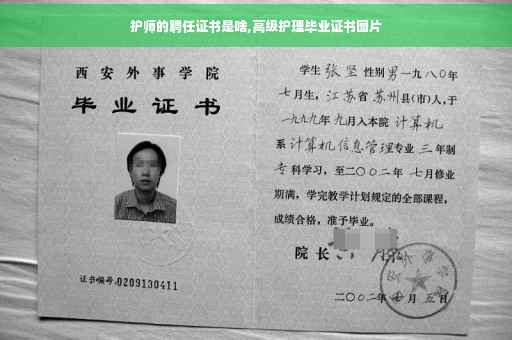 护师的聘任证书是啥,高级护理毕业证书图片
西安外事学院
毕业证书
证书编号:0209130411
学生 张坚 性别 男 一九八〇年
七月生, 江苏省 苏州县(市)人,于
一九九九年 九月入本院 计算机
系 计算机信息管理专业 三 年制
专 科学习, 至二〇〇二年 七月修业
期满, 学完教学计划规定的全部课程,
成绩合格, 准予毕业。
院长
二〇〇二年 七 月 五 日